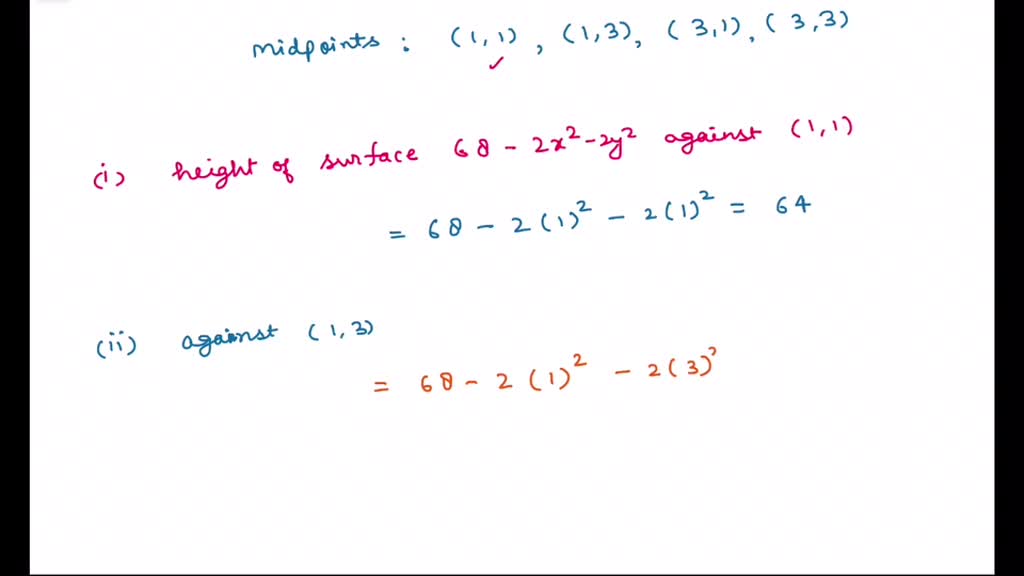 midpoints : (1,1) , (1,3), (3,1), (3,3)
✓
(i) height of surface 68 - 2x² - 2y² against (1,1)
= 68 - 2(1)² - 2(1)² = 64
(ii) against (1,3)
= 68 - 2(1)² - 2(3)²